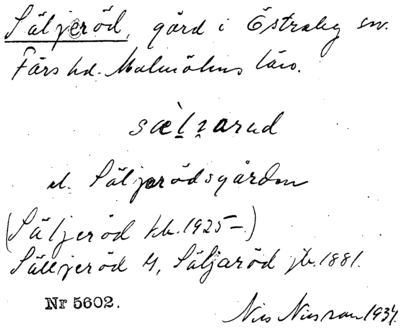 Säljeröd, gård i Östraby sn.
Färs hd. Malmöhus län.
sæ̀lɟarud
el. Säljerödsgården
(Säljeröd kb. 1925–.)
Sälljeröd 4, Säljaröd jb. 1881.
Nr 5602.
Nils 1934.